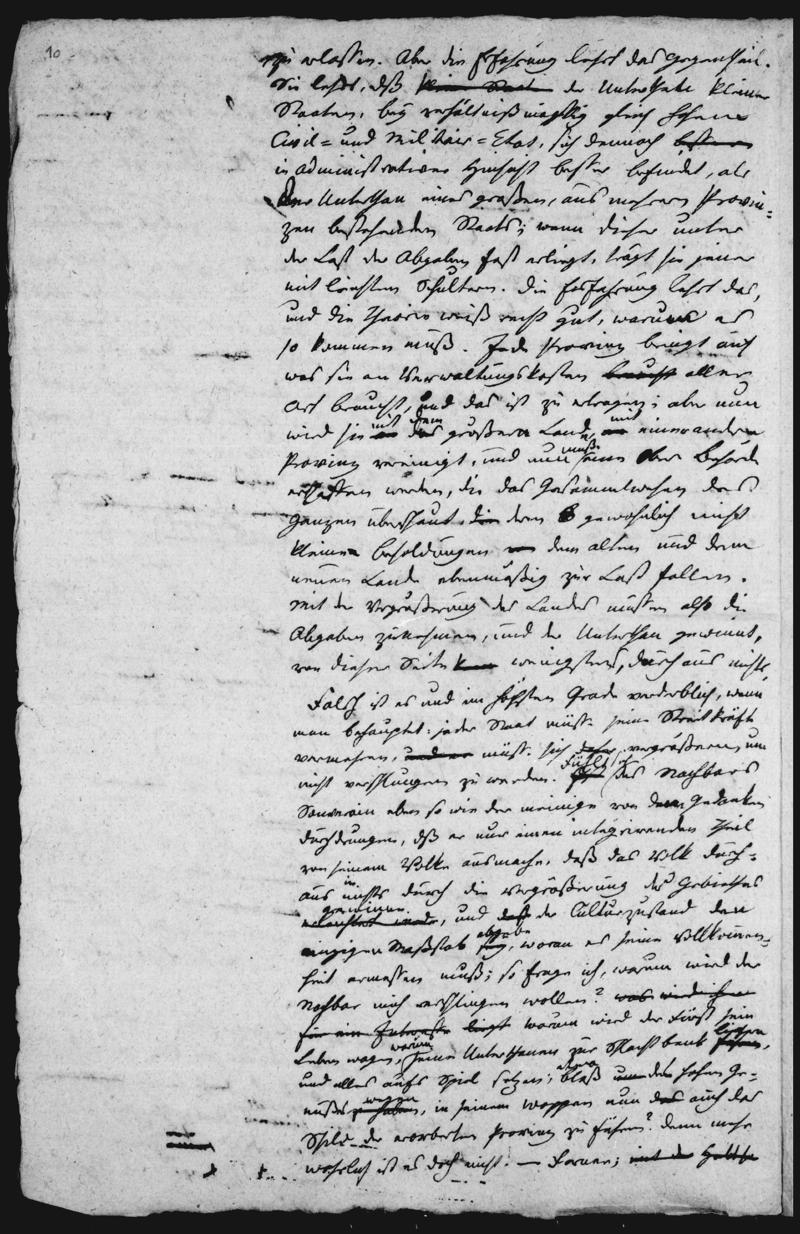 10
zu erlassen. Aber die Erfahrung lehrt das Gegentheil.
Sie lehrt, dß klein Staat der Unterthan kleiner
Staaten, bey verhältnißmäßig gleich hohem
Civil= und Militair=Etat, sich dennoch besser
in administrativer Hinsicht besser befindet, als
der Unterthan eines großen, aus mehrern Provin=
zen bestehenden Staats; wenn dieser unter
der Last der Abgaben fast erliegt, trägt sie jener
mit leichten Schultern. Die Erfahrung lehrt das,
und die Theorie weiß recht gut, warum es
so kommen muß. Jede Provinz bringt auf
was sie an Verwaltungskosten braucht aller
Art braucht, und das ist zu ertragen; aber nun
wird sie mit dem größern Lande, mit einer andern
Provinz vereinigt, und nun muß eine Ober Behörde
erhalten werden, die das Gesammtwesen des
Ganzen überschaut, die deren gewöhnlich nicht
kleine Besoldungen dem alten und dem
neuen Lande ebenmäßig zur Last fallen.
Mit der Vergrößerung des Landes müssen also die
Abgaben zunehmen, und der Unterthan gewinnt,
von dieser Seite wenigstens, durchaus nichts.
Falsch ist es und im höchsten Grade verderblich, wenn
man behauptet: jeder Staat müsse seine Streitkräfte
vermehren, und er müsse sich daher vergrößern, um
nicht verschlungen zu werden. Fühlt sich des Nachbars
Souverain eben so wie der meinige von dem Gedanken
durchdrungen, dß er nur einen integrirenden Theil
von seinem Volke ausmache, daß das Volk durch=
aus in nichts durch die Vergrößerung des Gebiethes
gewinne, und daß der Culturzustand den
einzigen Maßstab abgebe, woran es seine Vollkommen=
heit ermessen muß; so frage ich, warum wird der
Nachbar mich verschlingen wollen? was wird ihm
für ein Interesse liegt warum wird der Fürst sein
Leben wagen, warum seine Unterthanen zur Schlachtbank liefern führen,
und alles aufs Spiel setzen; bloß um des hohen Ge=
nußes wegen, in seinem Wappen nun das auch das
Schild der eroberten Provinz zu führen? denn mehr
wahrlich ist es doch nicht. — Ferner; mit der